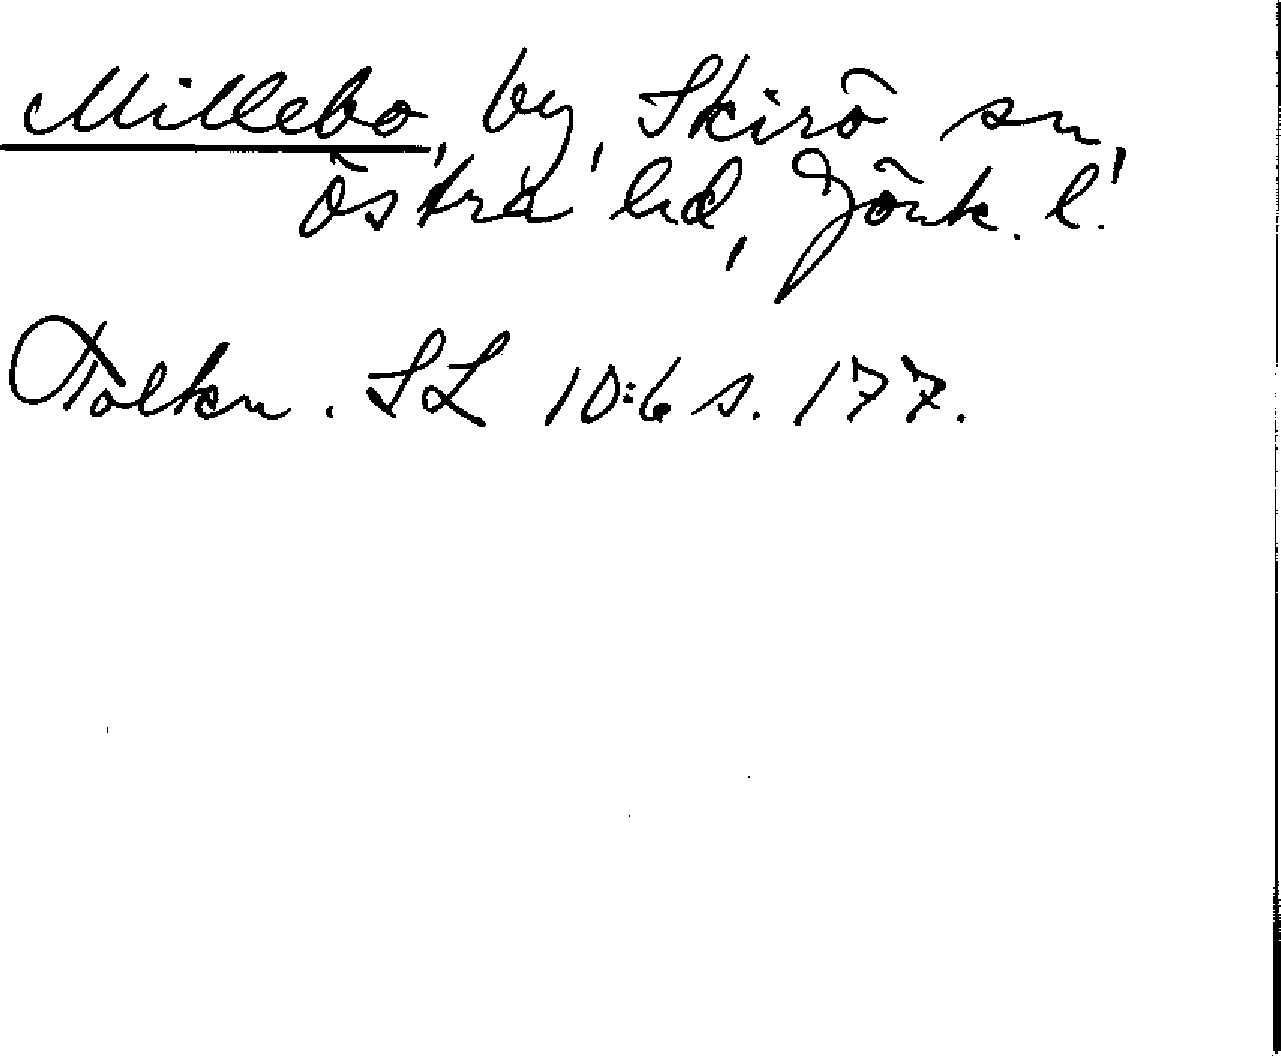 Millebo, by, Skirö sn,
östra hd, Jönk. l.
Tolkn. SL 10:6 s. 177.